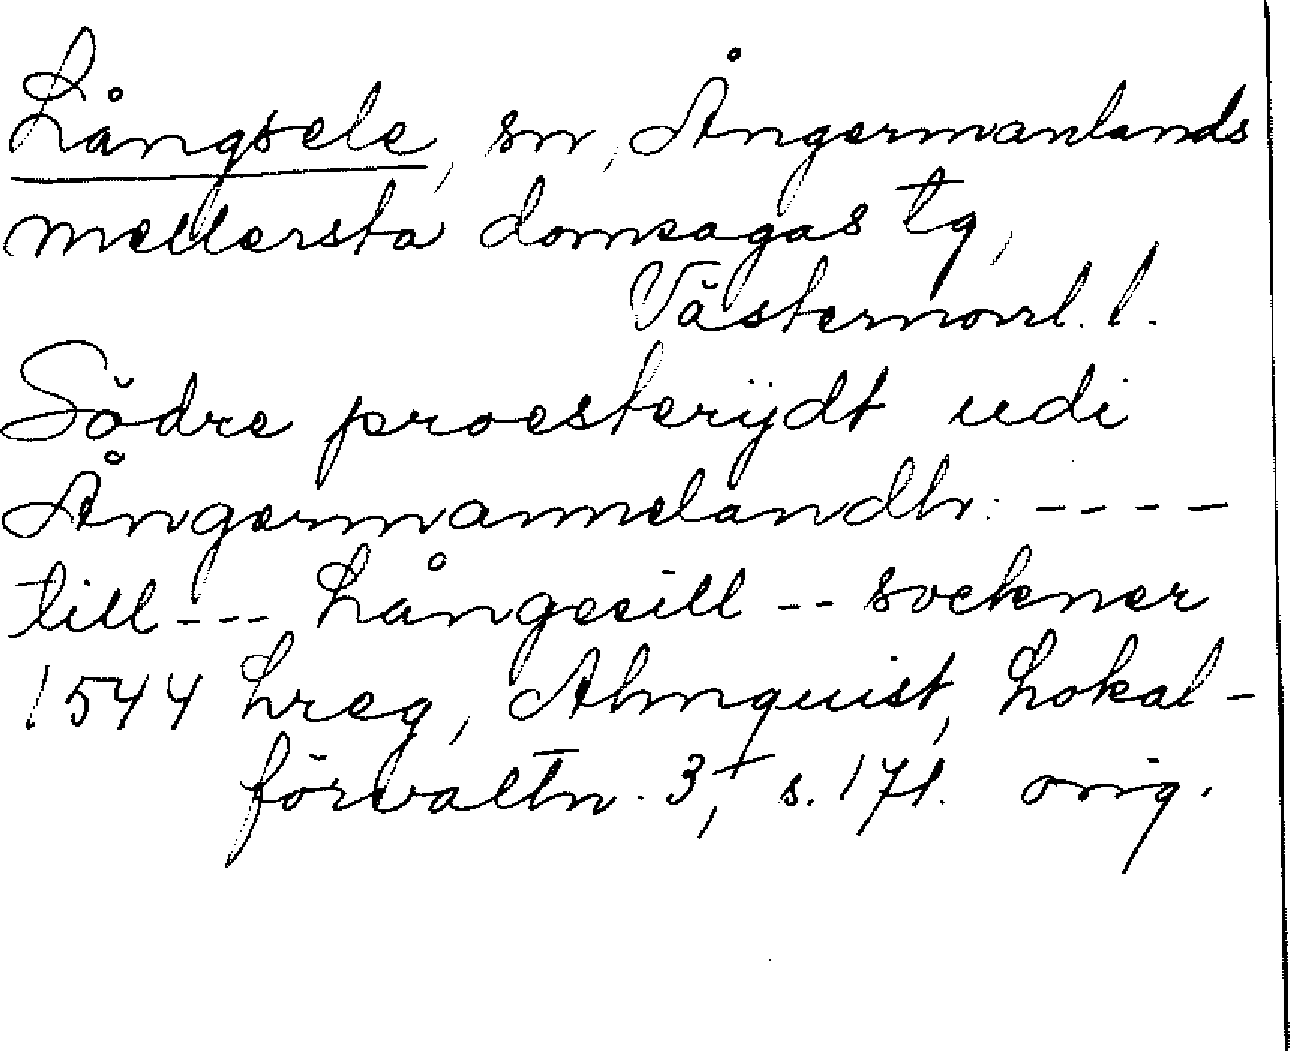 Långsele, sn, Ångermanlands
mellersta domsagas tg,
Västernorrl. l.
Södre proesterijdt udi
Ångermannelandh: ----
till --- Långesill -- sockner
1544 Lreg, Almquist, Lokal-
förvaltn. 3, s. 171. orig.